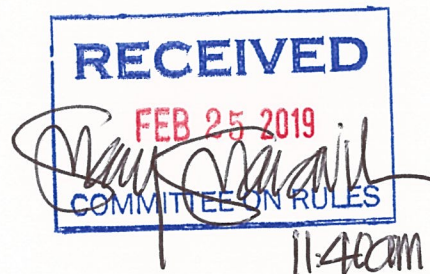 RECEIVED
FEB 25 2019
COMMITTEE ON RULES
11:40am